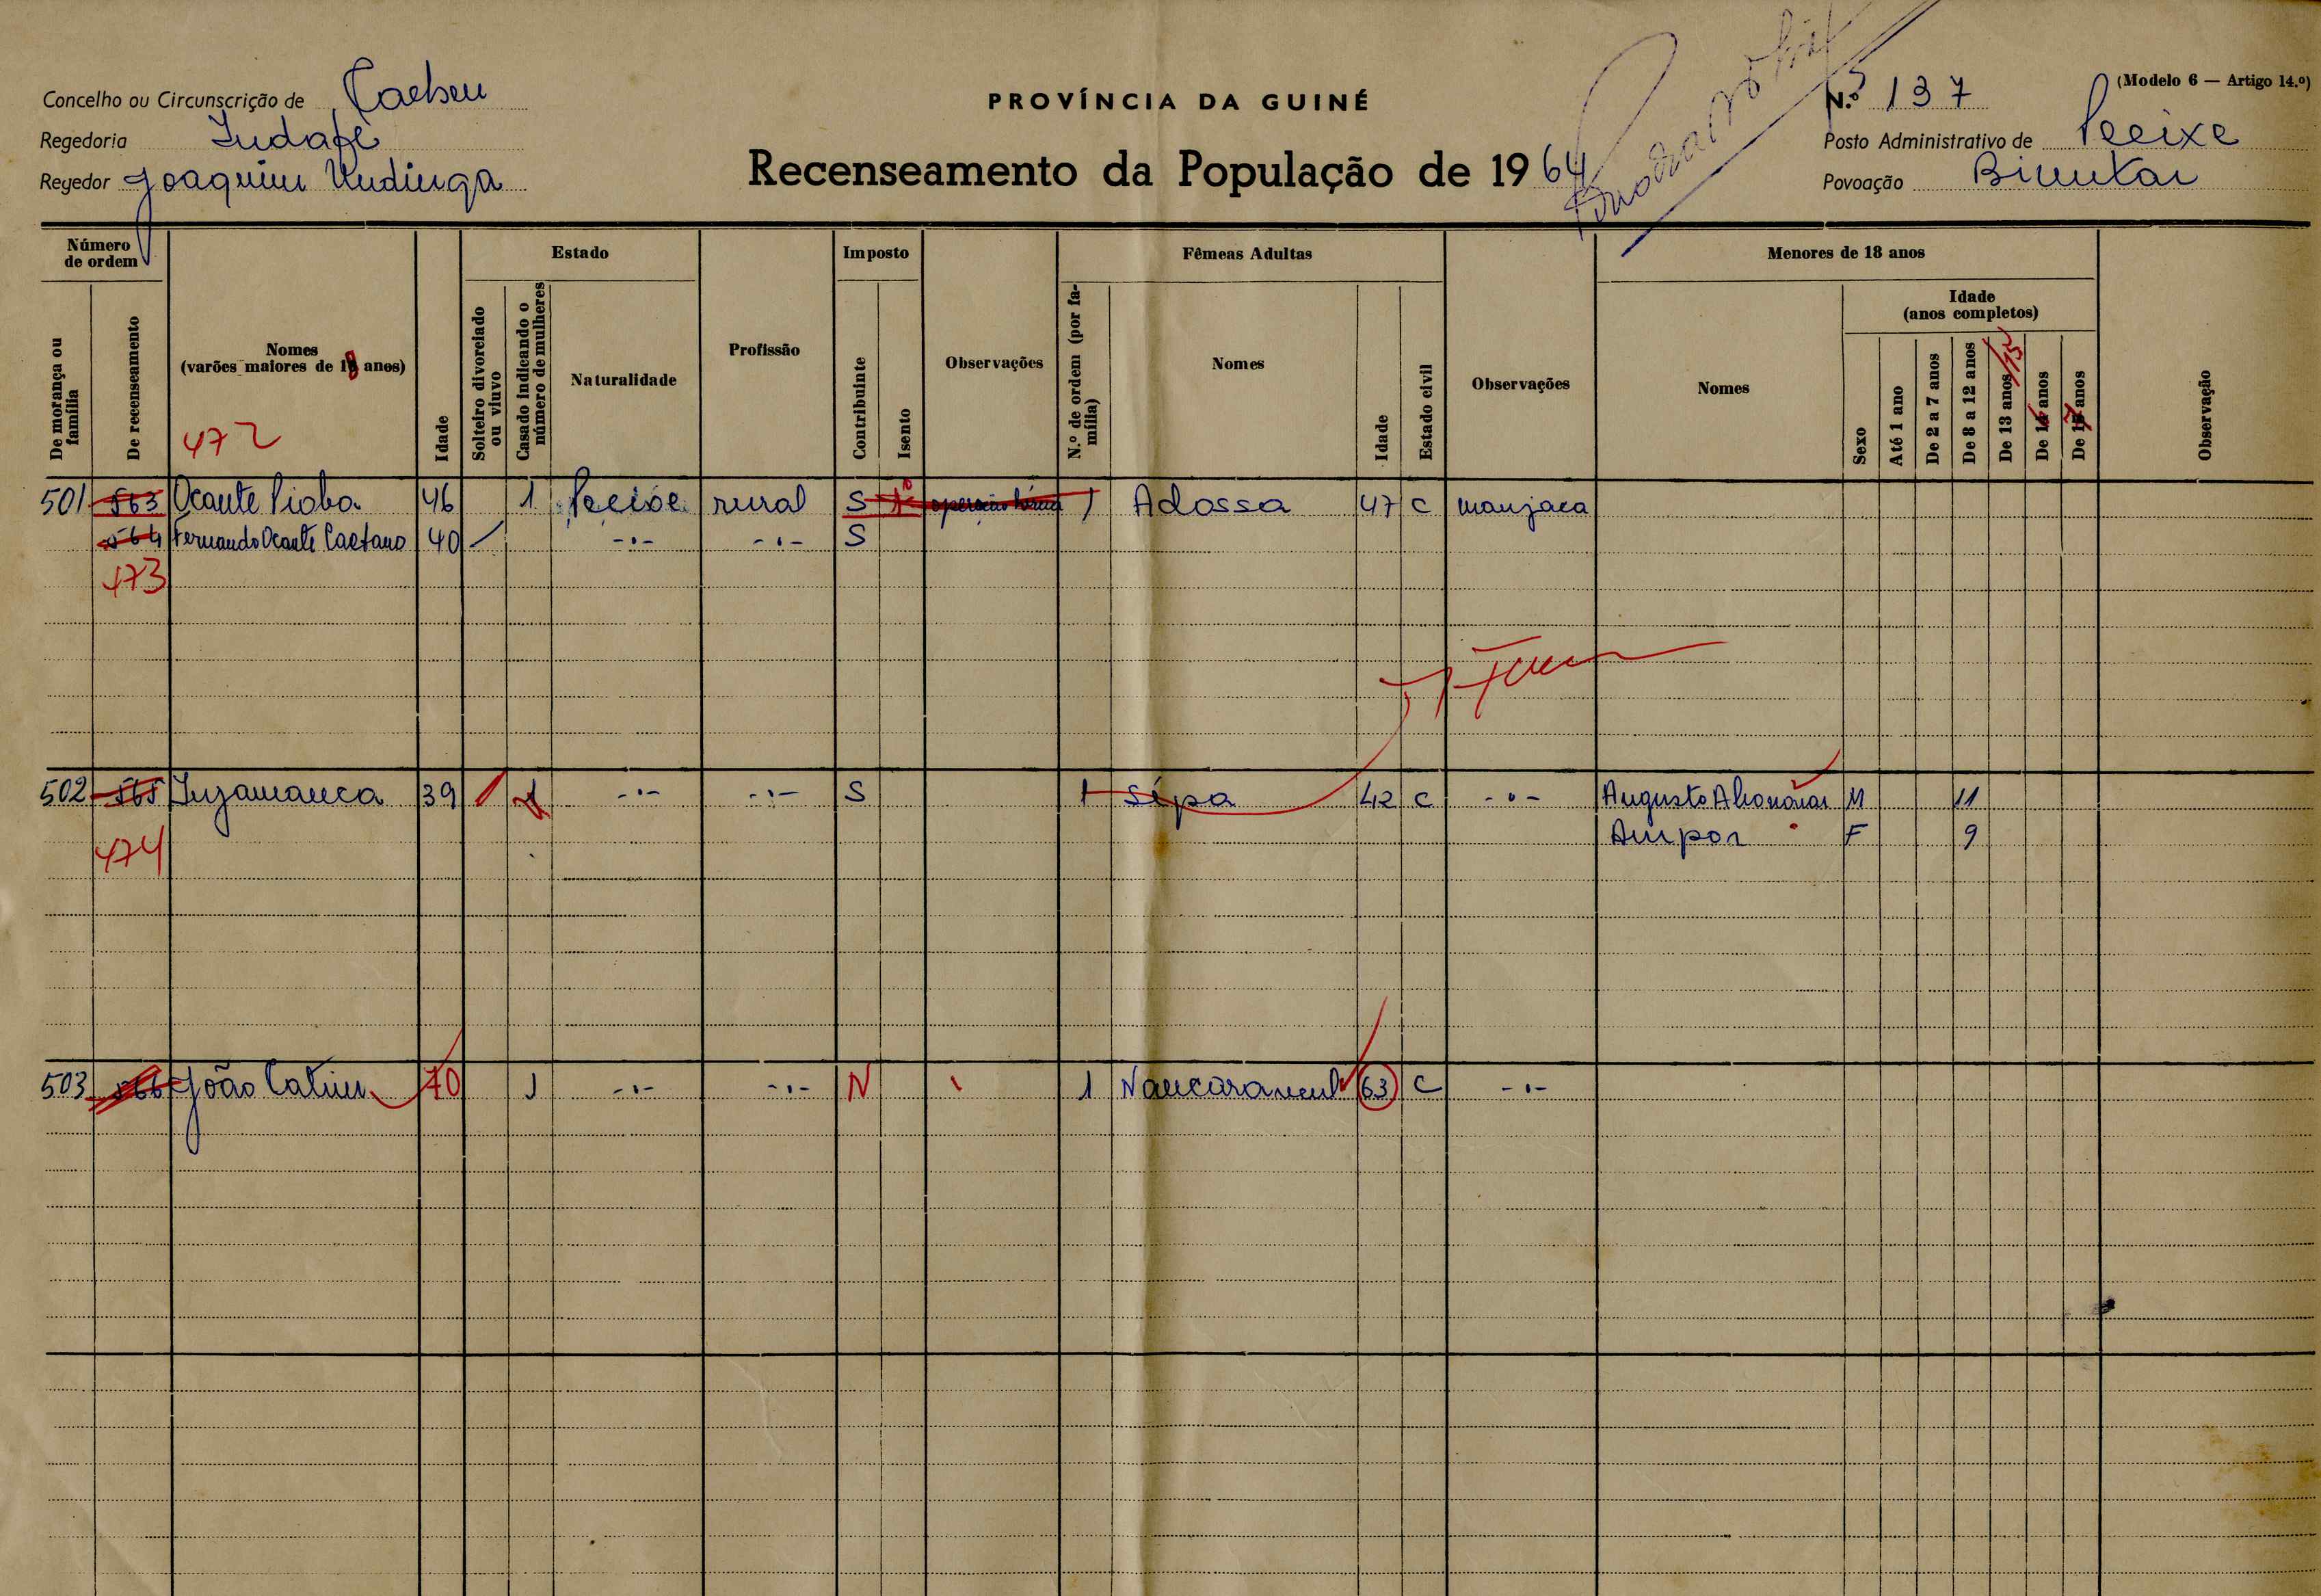 Concelho ou Circunscrição de Cacheu
Regedoria Indafe
Regedor Joaquim Undinga
PROVÍNCIA DA GUINÉ
Recenseamento da População de 1964
(Modelo 6 — Artigo 14.º)
N.º 137
Posto Administrativo de Pecixe
Povoação Bimutar
Número de ordem
De morança ou família
De recenseamento
Nomes
(varões maiores de 18 anos)
472
Idade
Estado
Solteiro divorciado ou viuvo
Casado indicando o número de mulheres
Naturalidade
Profissão
Imposto
Contribuinte
Isento
Observações
Fêmeas Adultas
N.º de ordem (por família)
Nomes
Idade
Estado civil
Observações
Menores de 18 anos
Nomes
Idade
(anos completos)
Sexo
Até 1 ano
De 2 a 7 anos
De 8 a 12 anos
De 13 anos /15
De 16 anos
De 17 anos
Observação
501 563 Ocante Pioba 46 1 Pecixe rural S 1 Adossa 47 C manjaca
564 Fernando Ocante Caetano 40 -·- -·- S
473
502 565 Injamanca 39 1 -·- -·- S 1 Sipa 42 C -·- Augusto M 11
474 Ampor F 9
503 566 João Catim 70 1 -·- -·- N 1 63 C -·-